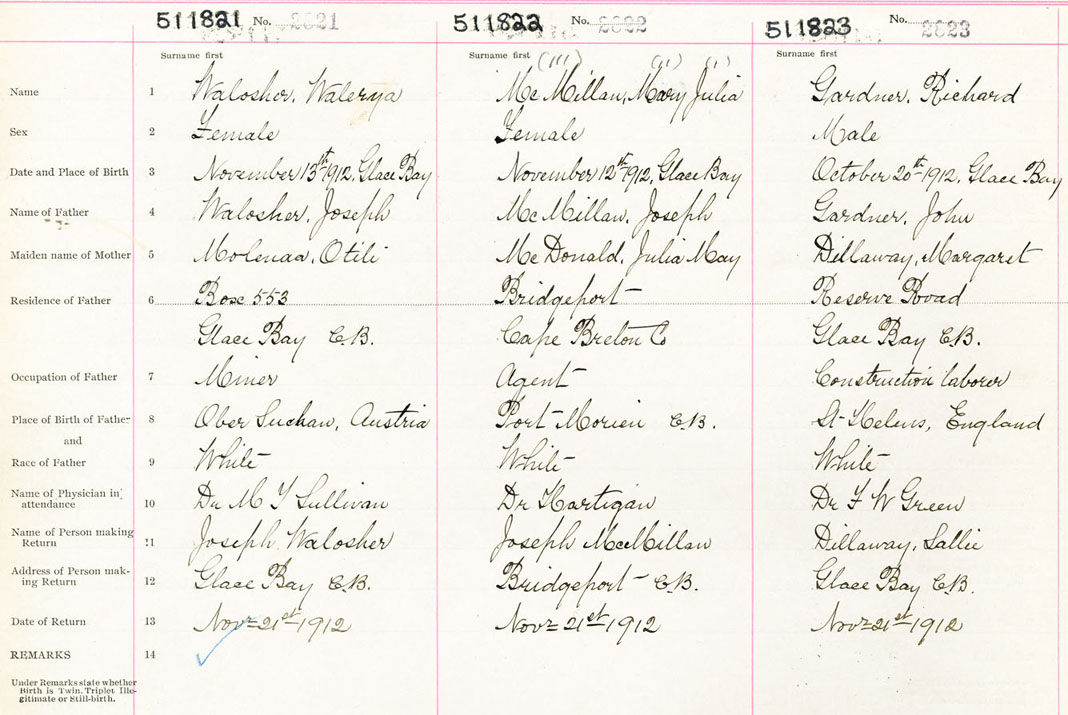 511821 No. 2621 511822 No. 2622 511823 No. 2623
Surname first Surname first (111) (11) (1) Surname first
Name 1 Walosher, Walerya McMillan, Mary Julia Gardner, Richard
Sex 2 Female Female Male
Date and Place of Birth 3 November 13th 1912, Glace Bay November 12th 1912, Glace Bay October 20th 1912, Glace Bay
Name of Father 4 Walosher, Joseph McMillan, Joseph Gardner, John
Maiden name of Mother 5 Molenaa, Otili McDonald, Julia May Dillaway, Margaret
Residence of Father 6 Box 553 Bridgeport Reserve Road
Glace Bay C.B. Cape Breton Co Glace Bay C.B.
Occupation of Father 7 Miner Agent Construction laborer
Place of Birth of Father 8 Ober Suchau, Austria Port Morien C.B. St Helens, England
and
Race of Father 9 White White White
Name of Physician in attendance 10 Dr M T Sullivan Dr Hartigan Dr F W Green
Name of Person making Return 11 Joseph Walosher Joseph McMillan Dillaway, Sallie
Address of Person mak-ing Return 12 Glace Bay C.B. Bridgeport C.B. Glace Bay C.B.
Date of Return 13 Nov= 21st 1912 Nov= 21st 1912 Nov= 21st 1912
REMARKS 14
Under Remarks state whether
Birth is Twin, Triplet Ille-
gitimate or Still-birth.